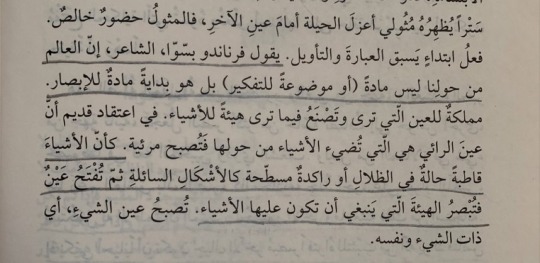 سَتْراً يُظهرُهُ مُثولي أعزلَ الحيلة أمامَ عينِ الآخرِ، فالمثولُ حضورٌ خالصٌ.
فعلُ ابتداءٍ يَسبق العبارةَ والتأويل. يقول فرناندو بسّوا، الشاعر، إنّ العالم
من حولِنا ليس مادةً (أو موضوعةً للتفكير) بل هو بدايةً مادةٌ للإبصار.
مملكةٌ للعين الّتي ترى وتَصْنَعُ فيما ترى هيئةً للأشياء. في اعتقاد قديم أنَّ
عينَ الرائي هي الّتي تُضيء الأشياء من حولها فَتُصبح مرئية. كأنّ الأشياءَ
قاطبةً حالةٌ في الظلالِ أو راكدةٌ مسطّحة كالأشْكَالِ السائلةِ ثمّ تُفْتَحُ عَيْنٌ
فتُبْصرُ الهيئةَ الّتي يَنبغي أن تكون عليها الأشياء. تُصبحُ عين الشيءِ، أي
ذات الشيء ونفسه.